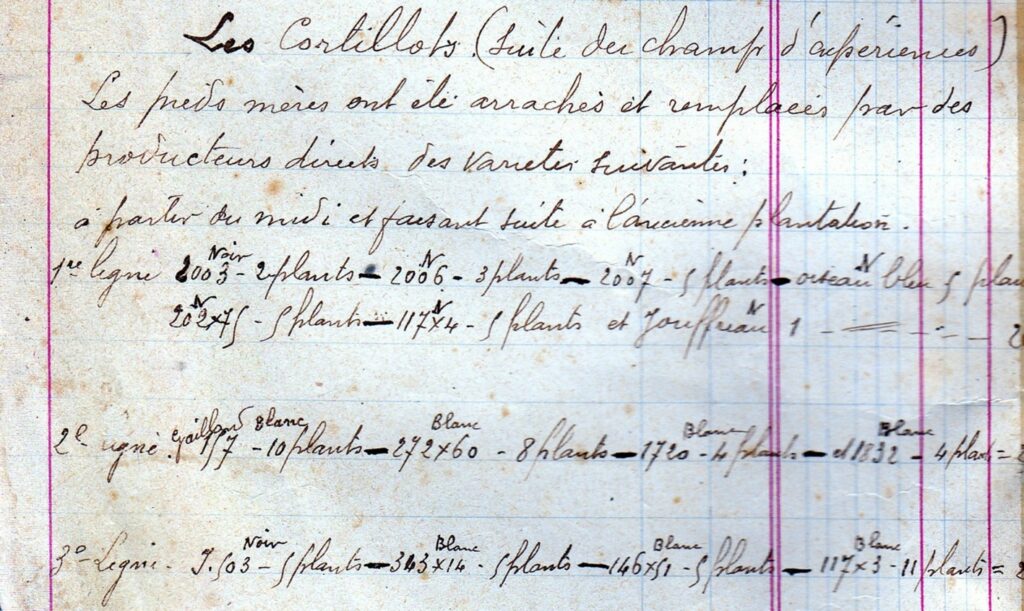 Les Cortillots (suite du champ d'expériences)
Les pieds mères ont été arrachés et remplacés par des
producteurs directs des varietés suivantes :
à partir du midi et faisant suite à l'ancienne plantation.
Noir N N N
1re ligne 2003 - 2 plants - 2006 - 3 plants - 2007 - 5 plants - oiseau bleu 5 plan
N N N
202x75 - 5 plants - 117x4 - 5 plants et Jouffreau 1 - " - 2
Blanc Blanc Blanc Blanc
2e ligne. Gaillard 157 - 10 plants - 272x60 - 8 plants - 1720 - 4 plants - et 1832 - 4 plants = 2
Noir Blanc Blanc Blanc
3e Ligne. J. 503 - 5 plants - 343x14 - 5 plants - 146x51 - 5 plants - 117x3 - 11 plants = 2